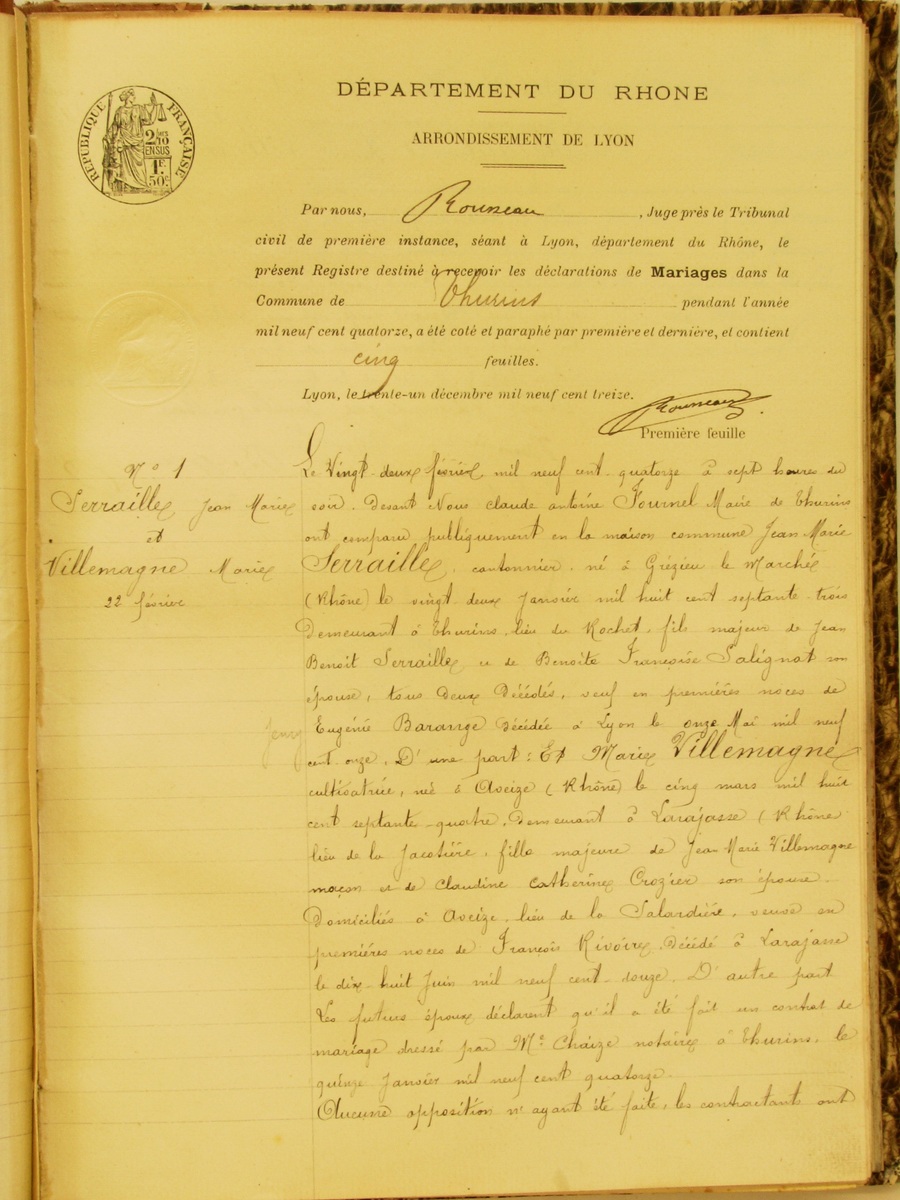 DÉPARTEMENT DU RHONE
RÉPUBLIQUE FRANÇAISE
2/10 EN SUS
1F 50c
ARRONDISSEMENT DE LYON
Par nous, Rousseau, Juge près le Tribunal
civil de première instance, séant à Lyon, département du Rhône, le
présent Registre destiné à recevoir les déclarations de Mariages dans la
Commune de Thurins pendant l'année
mil neuf cent quatorze, a été coté et paraphé par première et dernière, et contient
cinq feuilles.
Lyon, le trente-un décembre mil neuf cent treize.
Rousseau
Première feuille
N° 1
Serraille Jean Marie
et
Villemagne Marie
22 février
Le Vingt deux février mil neuf cent quatorze à sept heures du
soir. Devant Nous Claude antoine Fournel Maire de Thurins
ont comparu publiquement en la maison commune Jean Marie
Serraille, cantonnier, né à Grézieu le Marché
(Rhône) le vingt deux Janvier mil huit cent septante trois
Demeurant à Thurins, lieu du Rochet, fils majeur de Jean
Benoit Serraille et de Benoite Françoise Salignat son
épouse, tous Deux Décédés, veuf en premières noces de
Eugénie Barange Décédée à Lyon le onze Mai mil neuf
cent onze, D'une part : Et Marie Villemagne
cultivatrice, née à Aveize (Rhône) le cinq mars mil huit
cent septante quatre, Demeurant à Larajasse (Rhône
lieu de la Jacotière, fille majeure de Jean Marie Villemagne
maçon et de Claudine Catherine Crozier son épouse
Domiciliés à Aveize, lieu de la Salardière, veuve en
premières noces de François Rivoire, Décédé à Larajasse
le dix huit Juin mil neuf cent douze, D'autre part
Les futurs époux déclarent qu'il a été fait un contrat de
mariage dressé par Me Chaize notaire à Thurins, le
quinze Janvier mil neuf cent quatorze.
Aucune opposition n'ayant été faite, les contractants ont